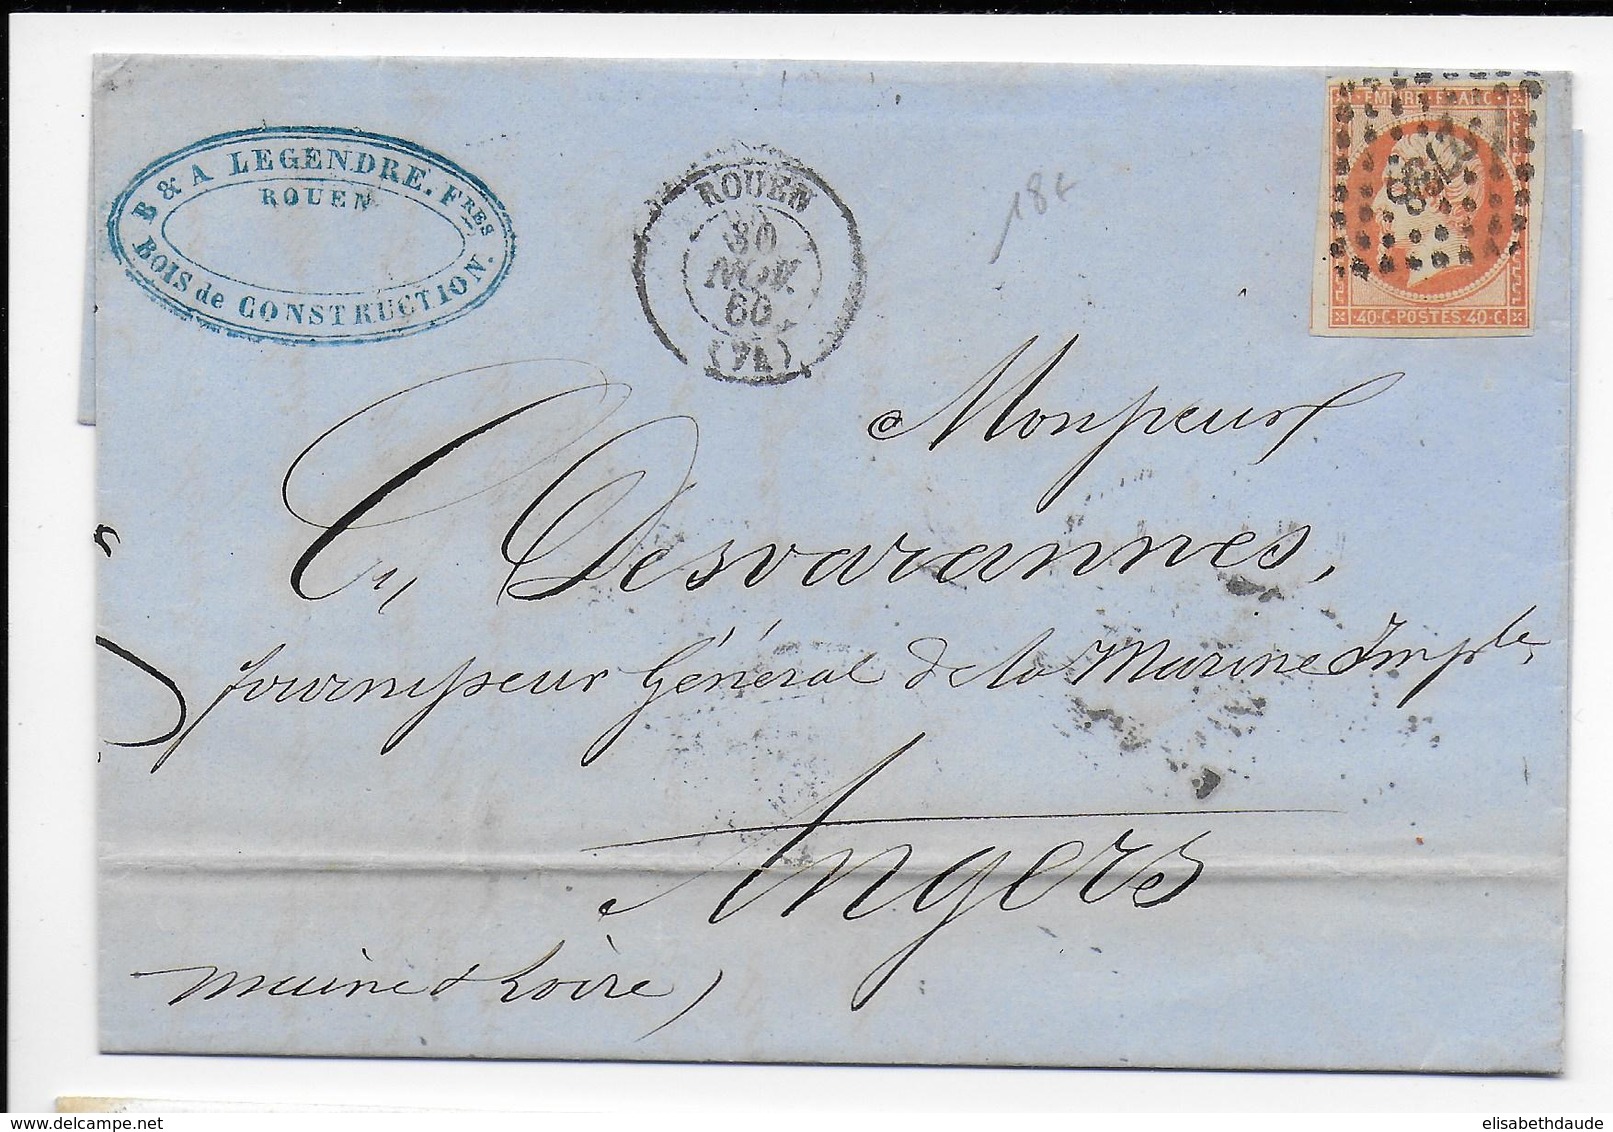 B & A LEGENDRE. Fres
ROUEN
BOIS de CONSTRUCTION.
ROUEN
30
NOV.
60
(74)
18 €
EMPIRE FRANC
40·C·POSTES·40·C·
Monsieur
C. Desvarannes,
fournisseur Général de la Marine Imple,
Angers
Maine & Loire)
elisabethdaude